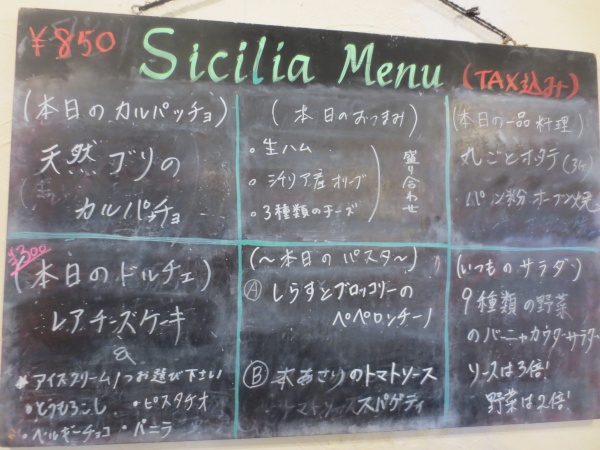 ¥850
Sicilia Menu
(TAX込み)
(本日のカルパッチョ)
天然ブリの
カルパッチョ
(本日のおつまみ)
。生ハム
。シチリア産オリーブ
。3種類のチーズ
盛り合わせ
(本日の一品料理)
丸ごとホタテ
パン粉オーブン焼
¥300
(本日のドルチェ)
レアチーズケーキ
&
アイスクリーム1つお選び下さい
・とうもろこし ・ピスタチオ
・ベルギーチョコ ・バニラ
(〜本日のパスタ〜)
Ⓐ しらすとブロッコリーの
ペペロンチーノ
Ⓑ 本あさりのトマトソース
スパゲティ
(いつものサラダ)
9種類の野菜
のバーニャカウダサラダ
ソースは3倍!
野菜は2倍!